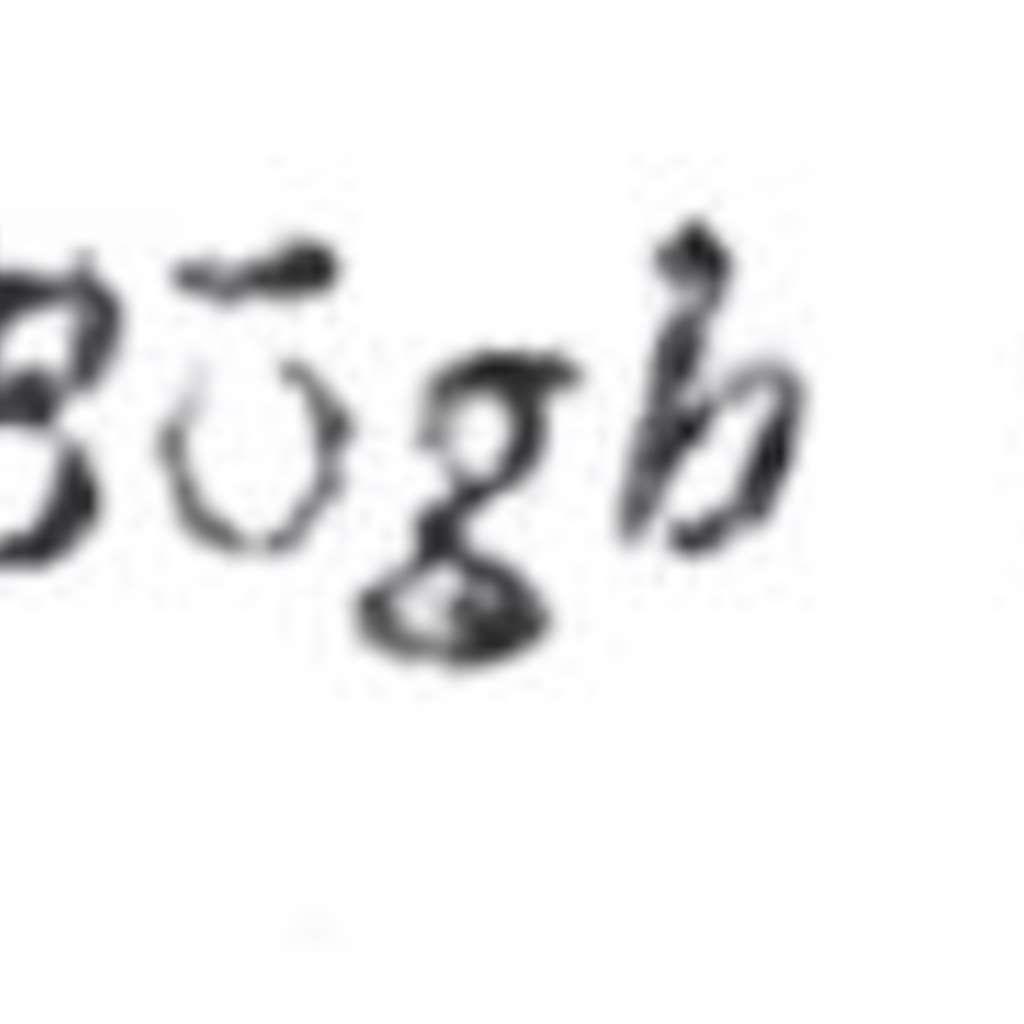 Bōgh